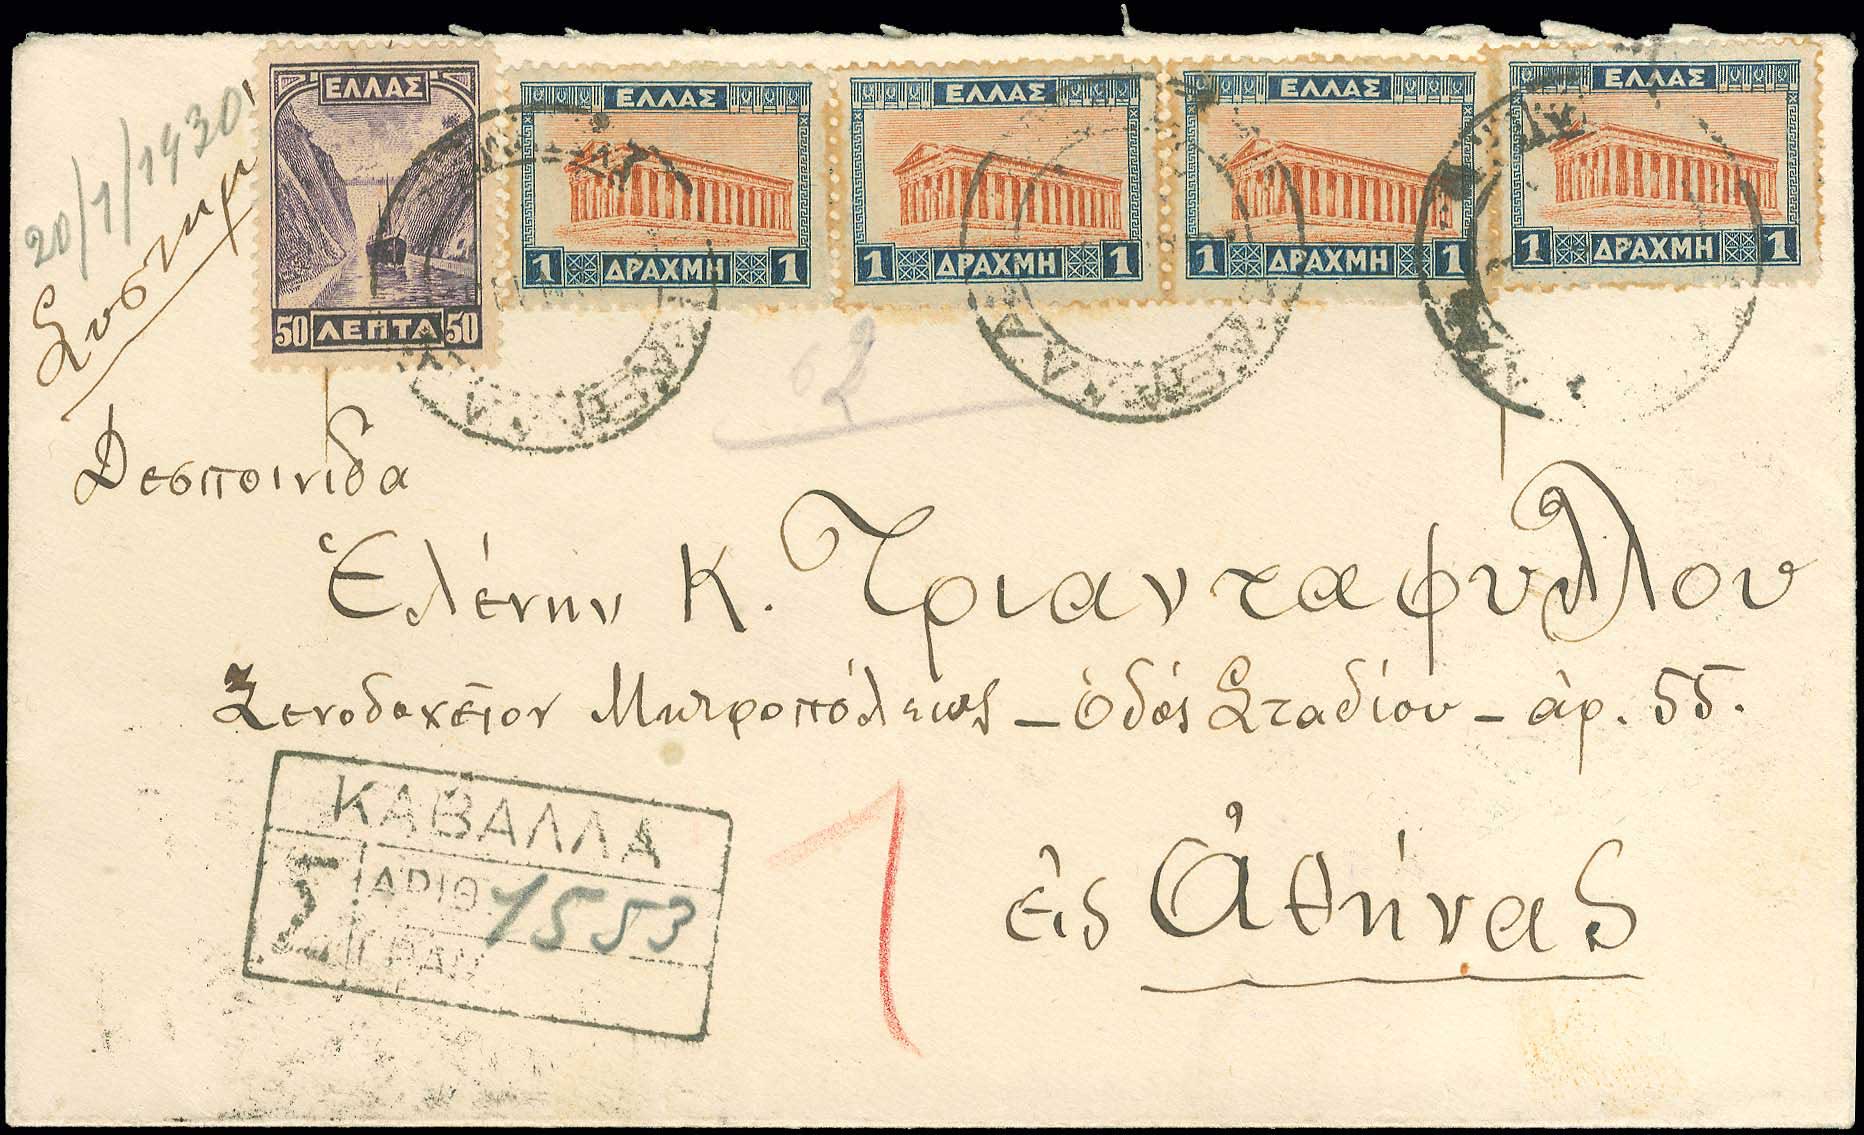 20/1/1930
Συστημ
ΕΛΛΑΣ
50 ΛΕΠΤΑ 50
ΕΛΛΑΣ
1 ΔΡΑΧΜΗ 1
ΕΛΛΑΣ
1 ΔΡΑΧΜΗ 1
ΕΛΛΑΣ
1 ΔΡΑΧΜΗ 1
ΕΛΛΑΣ
1 ΔΡΑΧΜΗ 1
Δεσποινιδα
Ἑλένην Κ. Τριανταφυλλου
Ξενοδοχεῖον Μητροπόλεως – ὁδός Σταδίου – ἀρ. 55.
εἰς Ἀθήνας
ΚΑΒΑΛΛΑ
Σ
ΑΡΙΘ 1553
ΓΡΑΜ
1